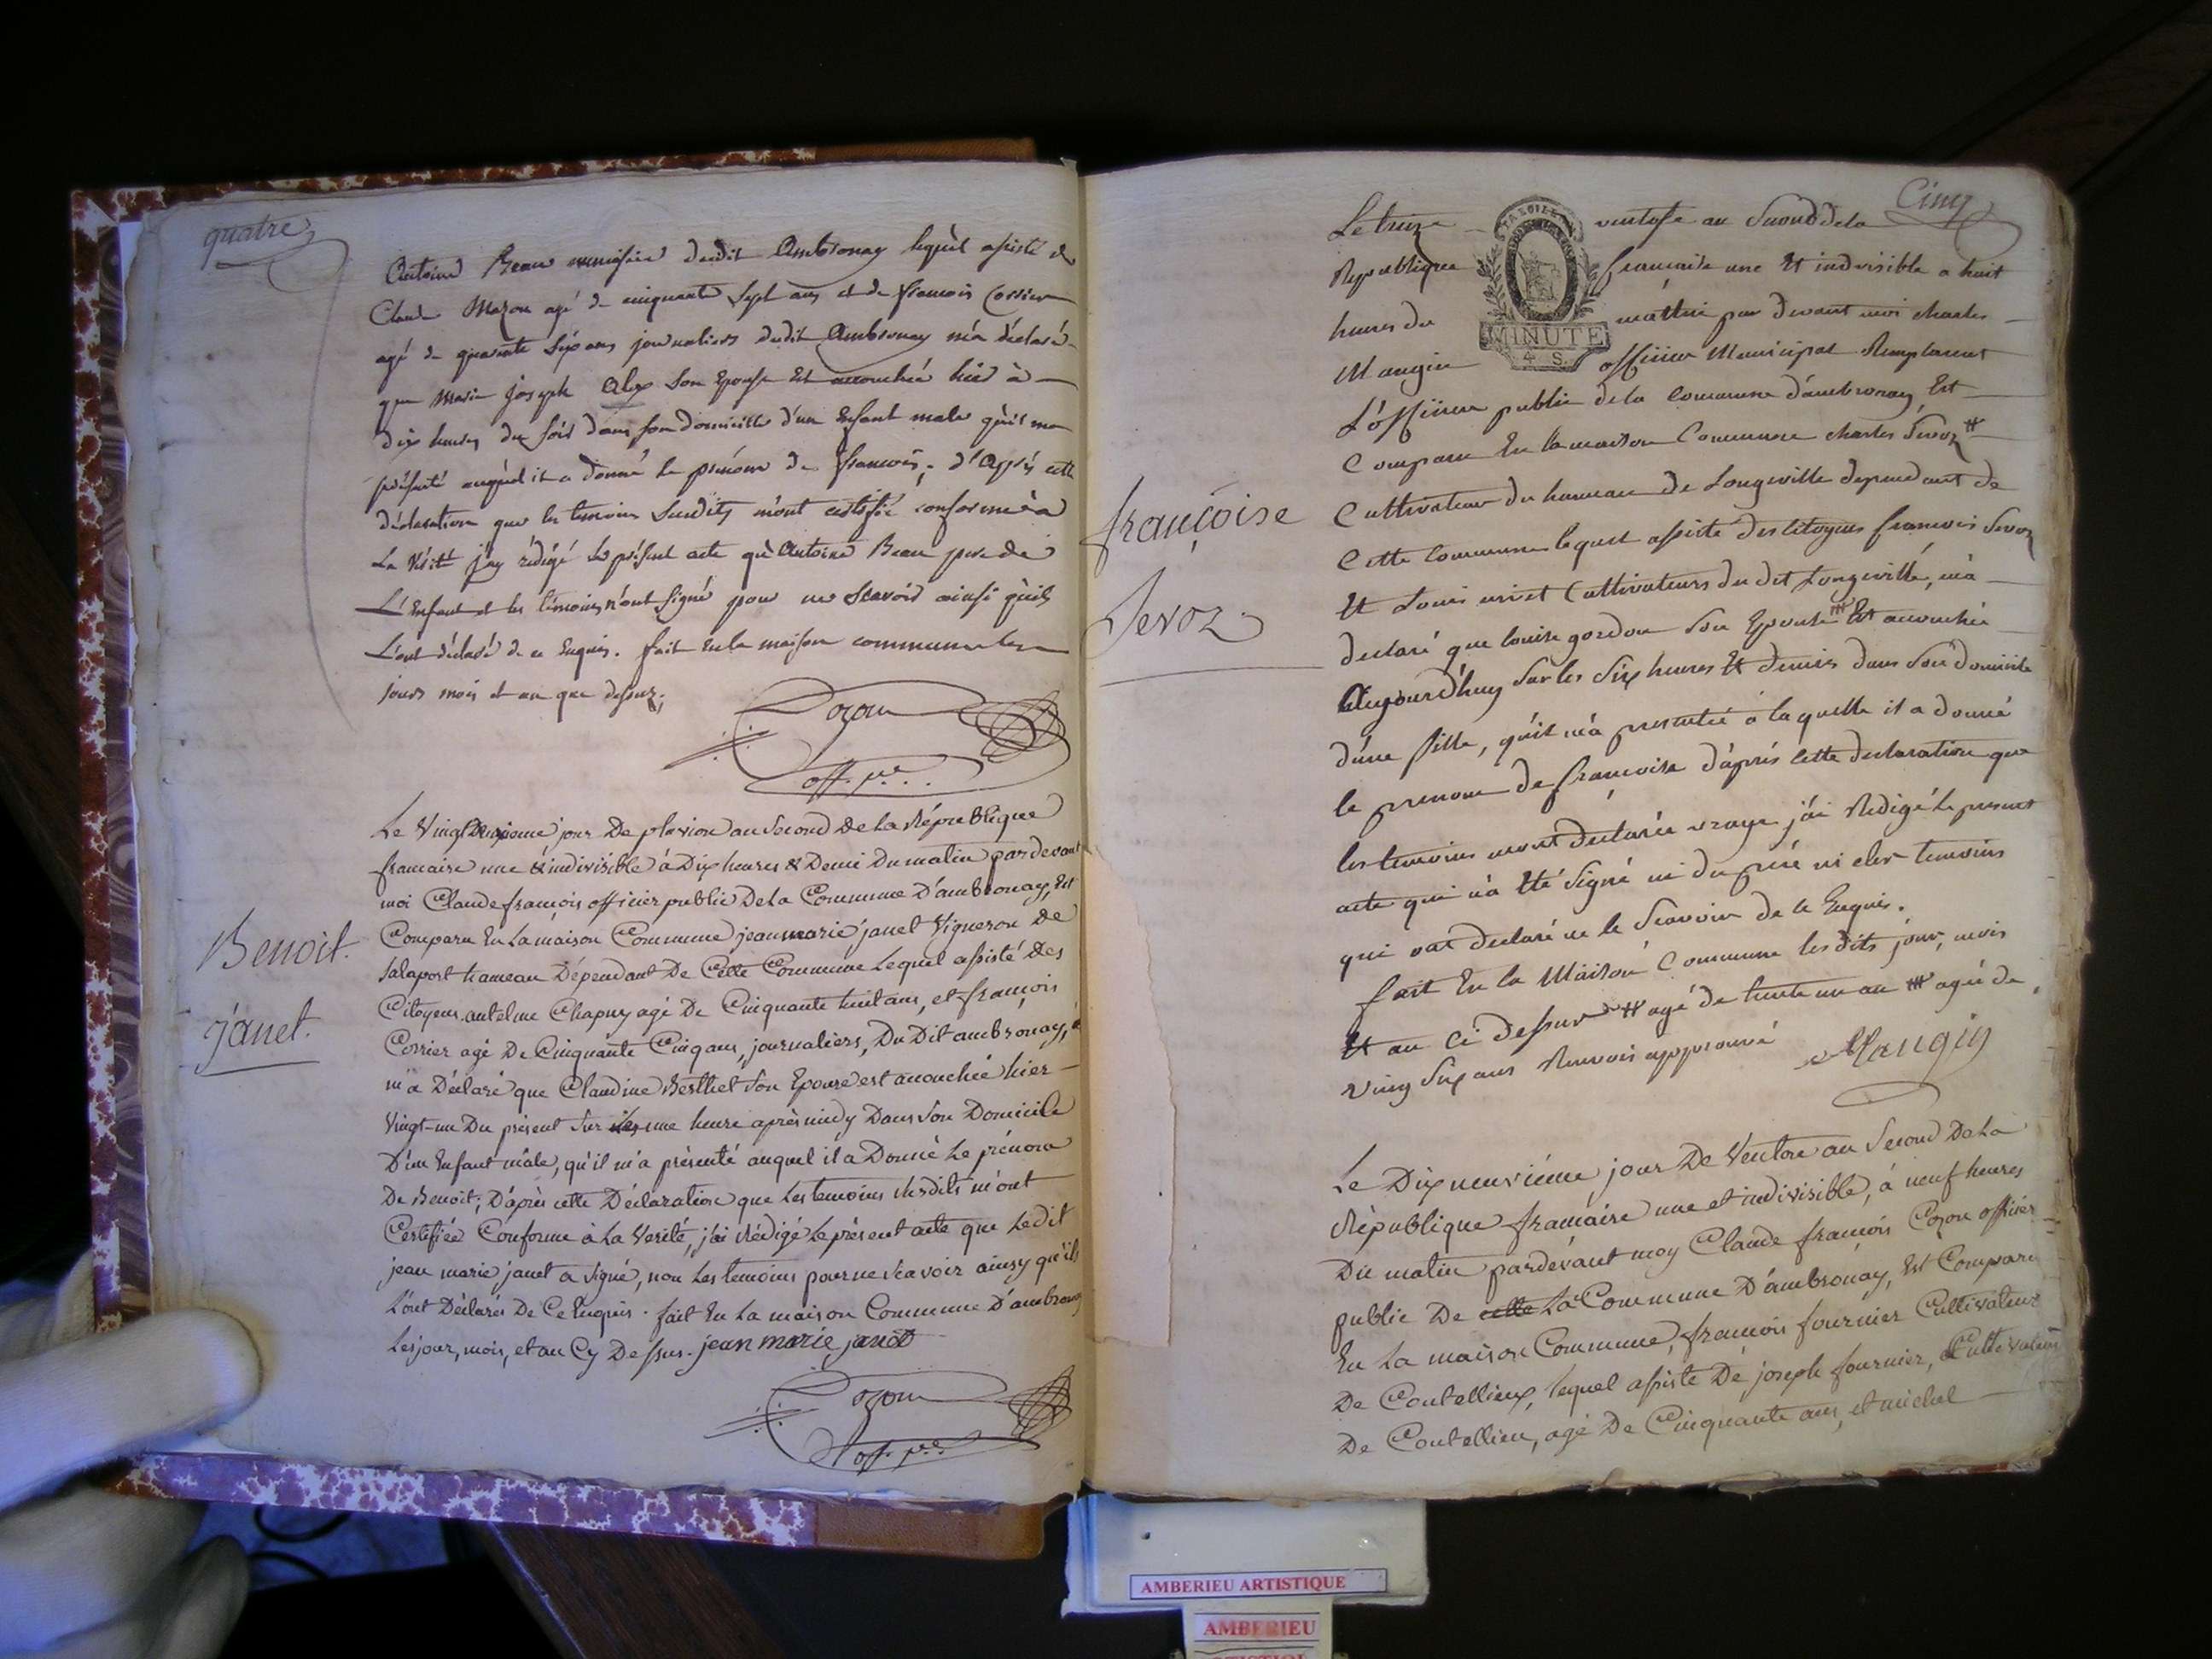 quatre
Antoine Beau menusier dudit Ambronay lequel assisté de
Claude Mazon agé de cinquante sept ans et de francois Corrier
agé de quarante six ans journaliers dudit Ambronay m'a déclaré
que Marie Joseph Alex son Epouse Est accouchée hier à
dix heures du soir dans son domicille d'un Enfant male qu'il ma
présenté auquel il a donné le prénom de francois, d'après cette
déclaration que les temoins susdits m'ont certifié conforme à
La Vérité j'ay rédigé le présent acte que Antoine Beau pere de
L'Enfant et les témoins n'ont signé pour ne scavoir ainsi qu'ils
L'ont déclaré de ce Enquis. fait En la maison commune les
jours mois et an que dessus,
Cozon
off. p.
Benoit.
janet.
Le Vingt Deuxieme jour De pluviose an Second De La République
francaise une & indivisible à Dix heures & Demi Du matin pardevant
moi Claude françois officier public De La Commune D'ambronay, Est
Comparu En La maison Commune jean marie janet Vigneron De
Salaport hameau Dépendant De Cette Commune Lequel assisté Des
Citoyens antelme Chapuy agé De Cinquante huit ans, et françois
Corrier agé De Cinquante Cinq ans, journaliers, Du Dit ambronay,
m'a Déclaré que Claudine Berthet Son Epouse est accouchée hier
Vingt-un Du présent Sur les une heure après midy Dans Son Domicile
D'un Enfant mâle, qu'il m'a présenté auquel il a Donné Le prénom
De Benoit; D'après cette Déclaration que Les temoins susdits m'ont
Certifiée Conforme à La Verité, j'ai rédigé Le présent acte que Le Dit
jean marie janet a signé, non Les temoins pour ne scavoir ainsy qu'ils
L'ont Déclarés De Ce Enquis. fait En La maison Commune D'ambronay
Les jour, mois, et an Cy Dessus. jean marie janet
Cozon
off. p.
Cinq
Le treize ventose an Second de la
Republique francaise une Et indivisible a huit
heures du mattin par devant moi charles
Mangin officier Municipal Remplacent
MINUTE
4 S.
L'officier public de la Commune d'ambronay Est
Comparu En la maison Commune charles Sevoz #
Cultivateur du hameau de Longeville dependant de
Cette Commune lequel assisté des citoyens francois Sevoz
Et Louis Cultivateurs du dit Longeville, m'a
declaré que louise gordon Son Epouse Est accouchée
Aujourd'huy Sur les Six heures Et demies dans Son domicile
d'une fille, qu'il m'a presentée a laquelle il a donné
le prenom de francoise d'après cette declaration que
les temoins m'ont declarée vraye j'ai Redigé Le present
acte qui n'a Eté Signé ni du pere ni des temoins
qui ont declaré ne le Scavoir de ce Enquis.
fait En la Maison Commune les dits jour, mois
Et an Ci dessus # agé de trente un an # agée de
vingt Six ans Renvois approuvé
Mangin
françoise
Sevoz
Le Dix neuvième jour De Ventose an Second De La
République francaise une et indivisible, à neuf heures
Du matin pardevant moy Claude francois Cozon officier
public De cette La Commune D'ambronay, Est Comparu
En La maison Commune, francois fournier Cultivateur
De Coutellieux, lequel assisté De joseph fournier, Cultivateur
De Coutellieu, agé De Cinquante ans, et michel
AMBERIEU ARTISTIQUE
AMBERIEU
ARTISTIQUE